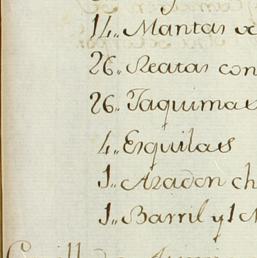 14.. Mantas
26. Reatas con
26. Taquimas
4.. Esquilas
1.. Azadon ch
1.. Barril y 1